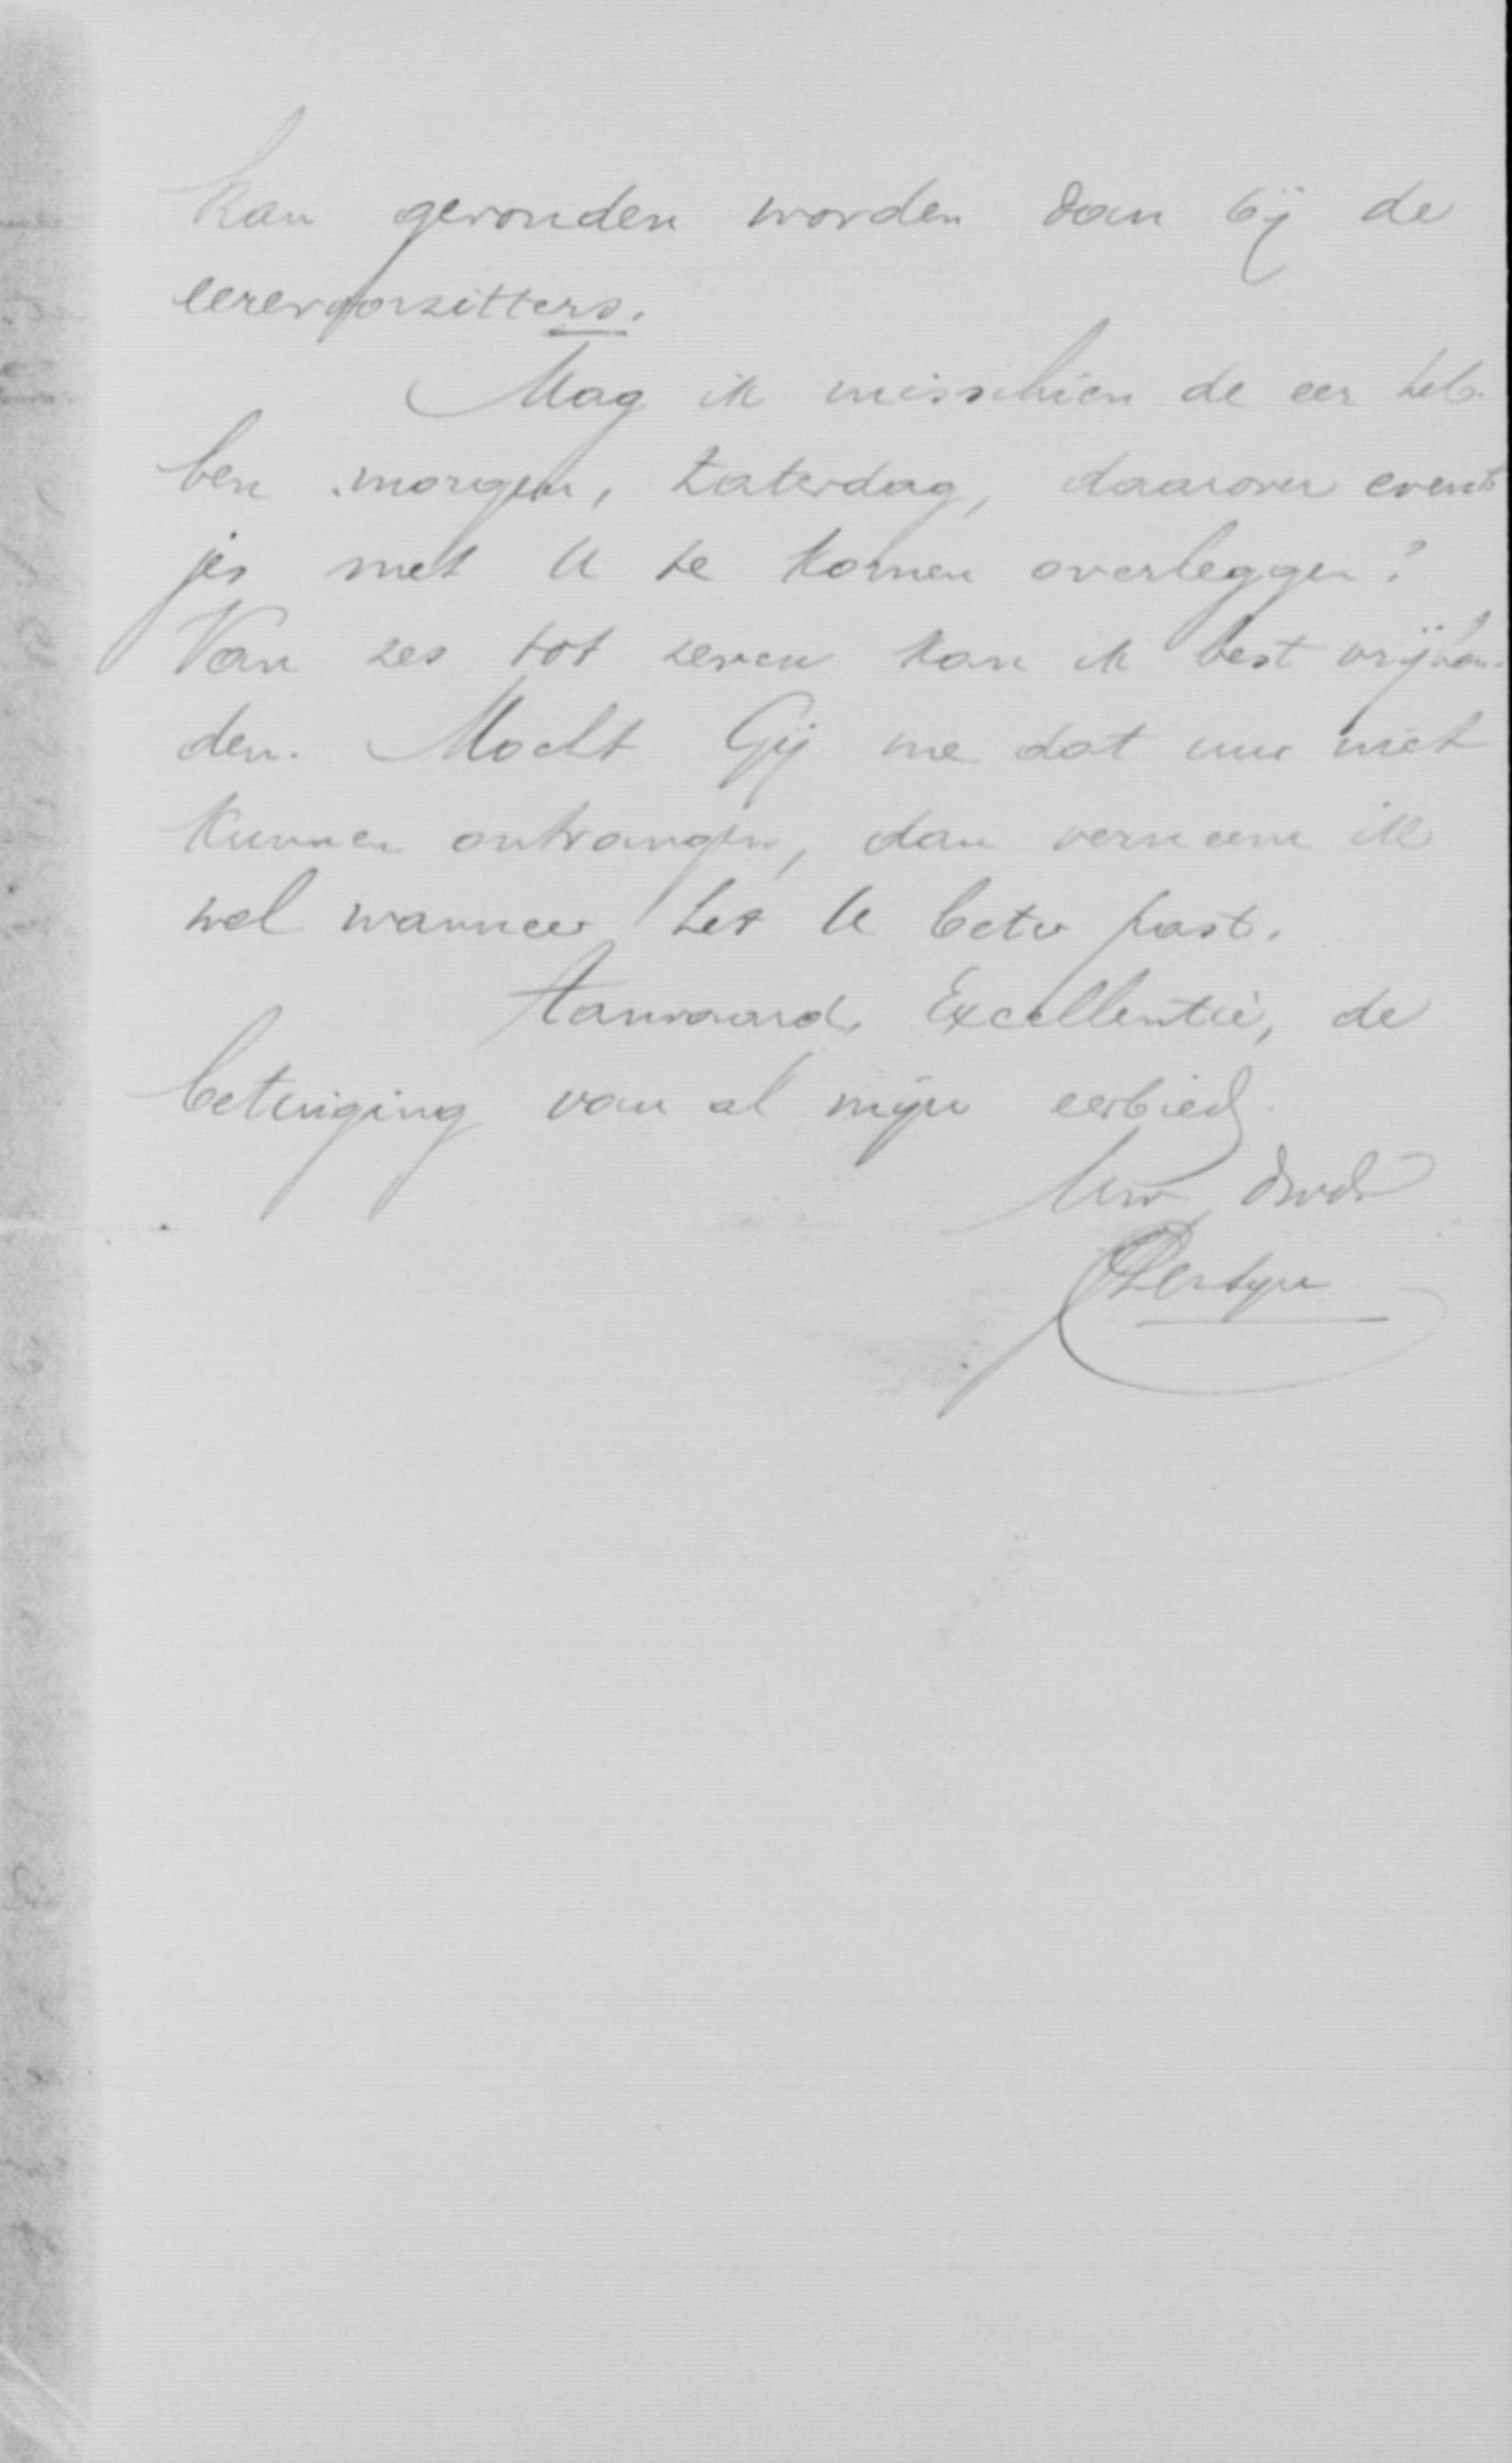 kan gevonden worden dan bij de
eerevoorzitters.
Mag ik misschien de eer heb-
ben morgen, Zaterdag, daarover event-
jes met U te komen overleggen?
Van zes tot zeven kan ik best vrijhou-
den. Mocht Gij me dat uur niet
kunnen ontvangen, dan verneem ik
wel wanneer het U beter past.
Aanvaard, Excellentie, de
betuiging van al mijn eerbied.
Uw dwd.